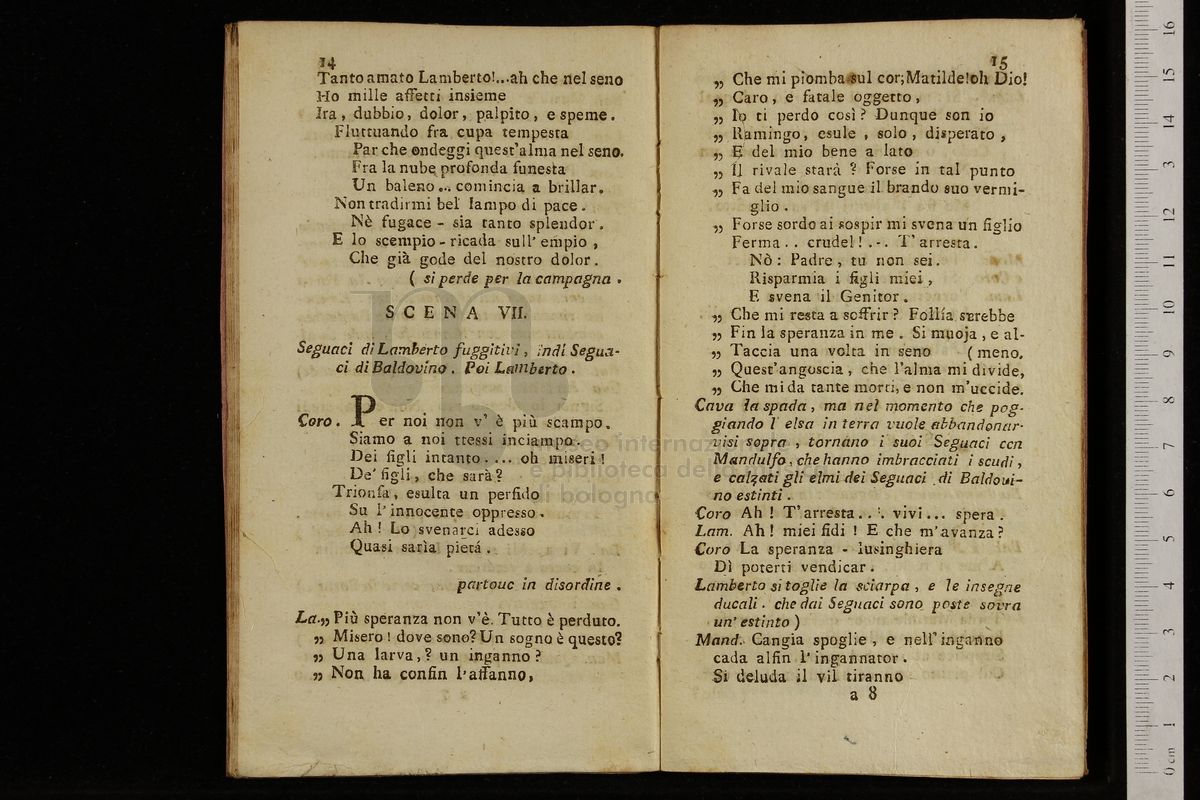 14
Tanto amato Lamberto!...ah che nel seno
Ho mille affetti insieme
Ira, dubbio, dolor, palpito, e speme.
Fluttuando fra cupa tempesta
Par che ondeggi quest'alma nel seno.
Fra la nube profonda funesta
Un baleno... comincia a brillar.
Non tradirmi bel lampo di pace.
Nè fugace - sia tanto splendor.
E lo scempio - ricada sull' empio,
Che già gode del nostro dolor.
( si perde per la campagna.
SCENA VII.
Seguaci di Lamberto fuggitivi, indi Segua-
ci di Baldovino. Poi Lamberto.
Coro. Per noi non v' è più scampo.
Siamo a noi ttessi inciampo.
Dei figli intanto.... oh miseri!
De' figli, che sarà?
Trionfa, esulta un perfido
Su l'innocente oppresso.
Ah! Lo svenarci adesso
Quasi sarìa pietá.
partouc in disordine.
La.„ Più speranza non v'è. Tutto è perduto.
„ Misero! dove sono? Un sogno è questo?
„ Una larva,? un inganno?
„ Non ha confin l'affanno,
15
„ Che mi piomba sul cor; Matilde! oh Dio!
„ Caro, e fatale oggetto,
„ Io ti perdo così? Dunque son io
„ Ramingo, esule, solo, disperato,
„ E del mio bene a lato
„ Il rivale starà? Forse in tal punto
„ Fa del mio sangue il brando suo vermi-
glio.
„ Forse sordo ai sospir mi svena un figlio
Ferma.. crudel!... T' arresta.
Nò: Padre, tu non sei.
Risparmia i figli miei,
E svena il Genitor.
„ Che mi resta a soffrir? Follía sarebbe
„ Fin la speranza in me. Si muoja, e al-
„ Taccia una volta in seno (meno,
„ Quest'angoscia, che l'alma mi divide,
„ Che mi da tante morti, e non m'uccide.
Cava la spada, ma nel momento che pog-
giando l' elsa in terra vuole abbandonar-
visi sopra, tornano i suoi Seguaci con
Mandulfo, che hanno imbracciati i scudi,
e calzati gli elmi dei Seguaci di Baldovi-
no estinti.
Coro Ah! T'arresta... vivi... spera.
Lam. Ah! miei fidi! E che m'avanza?
Coro La speranza - lusinghiera
Dì poterti vendicar.
Lamberto si toglie la sciarpa, e le insegne
ducali. che dai Seguaci sono poste sovra
un' estinto)
Mand. Cangia spoglie, e nell' inganno
cada alfin l' ingannator.
Si deluda il vil tiranno
a 8